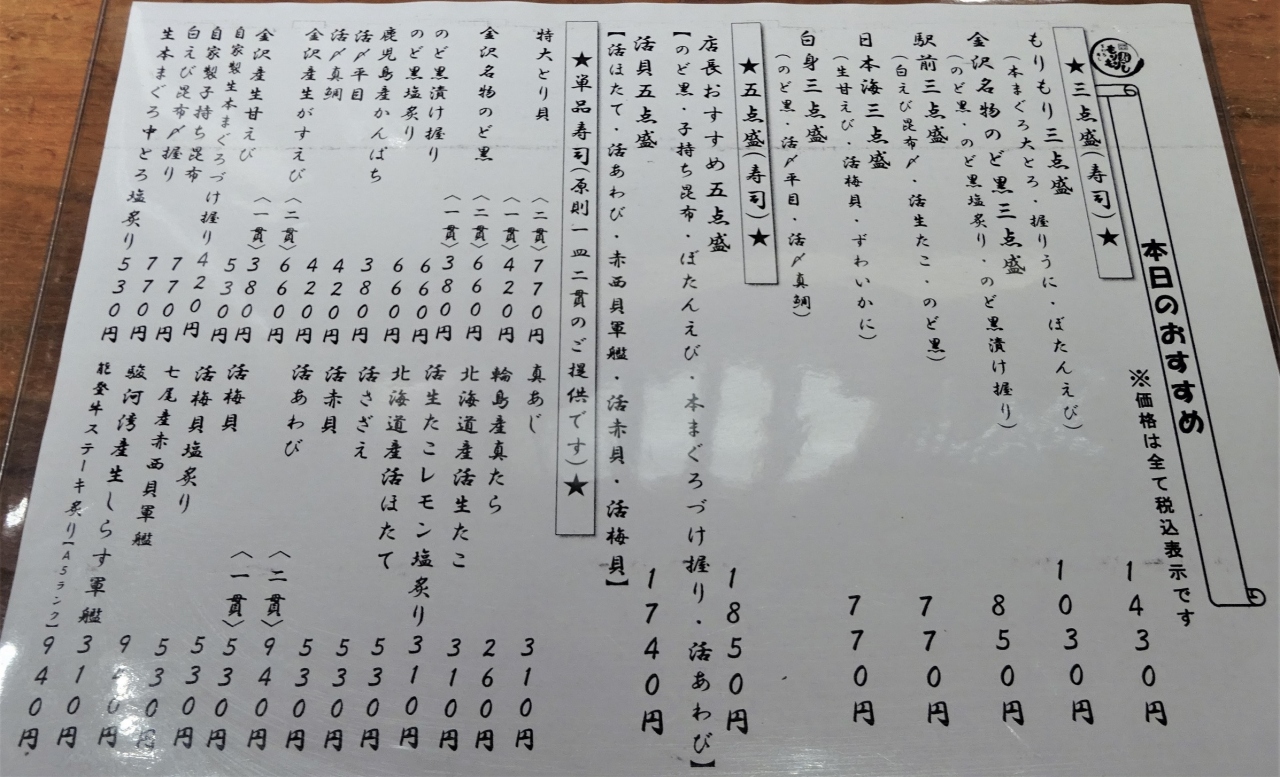 本日のおすすめ
※価格は全て税込表示です
★三点盛(寿司)★
もりもり三点盛 1430円
(本まぐろ大とろ・握りうに・ぼたんえび)
金沢名物のど黒三点盛 1030円
(のど黒・のど黒塩炙り・のど黒漬け握り)
駅前三点盛 850円
(白えび昆布〆・活生たこ・のど黒)
日本海三点盛 770円
(生甘えび・活梅貝・ずわいかに)
白身三点盛 770円
(のど黒・活〆平目・活〆真鯛)
★五点盛(寿司)★
店長おすすめ五点盛 1850円
【のど黒・子持ち昆布・ぼたんえび・本まぐろづけ握り・活あわび】
活貝五点盛 1740円
【活ほたて・活あわび・赤西貝軍艦・活赤貝・活梅貝】
★単品寿司(原則一皿二貫のご提供です)★
特大とり貝 〈二貫〉 770円
〈一貫〉 420円
金沢名物のど黒 〈二貫〉 660円
〈一貫〉 380円
のど黒漬け握り 660円
のど黒塩炙り 660円
鹿児島産かんぱち 380円
活〆平目 420円
活〆真鯛 420円
金沢産生がすえび 〈二貫〉 660円
〈一貫〉 380円
金沢産生甘えび 530円
自家製生本まぐろづけ握り 420円
自家製子持ち昆布 770円
白えび昆布〆握り 770円
生本まぐろ中とろ塩炙り 530円
真あじ 310円
輪島産真たら 260円
北海道産活生たこ 310円
活生たこレモン塩炙り 310円
北海道産活ほたて 530円
活さざえ 530円
活赤貝 530円
活あわび 〈二貫〉 940円
〈一貫〉 530円
活梅貝 530円
活梅貝塩炙り 530円
七尾産赤西貝軍艦 940円
駿河湾産生しらす軍艦 310円
能登牛ステーキ炙り【A5ランク】 940円